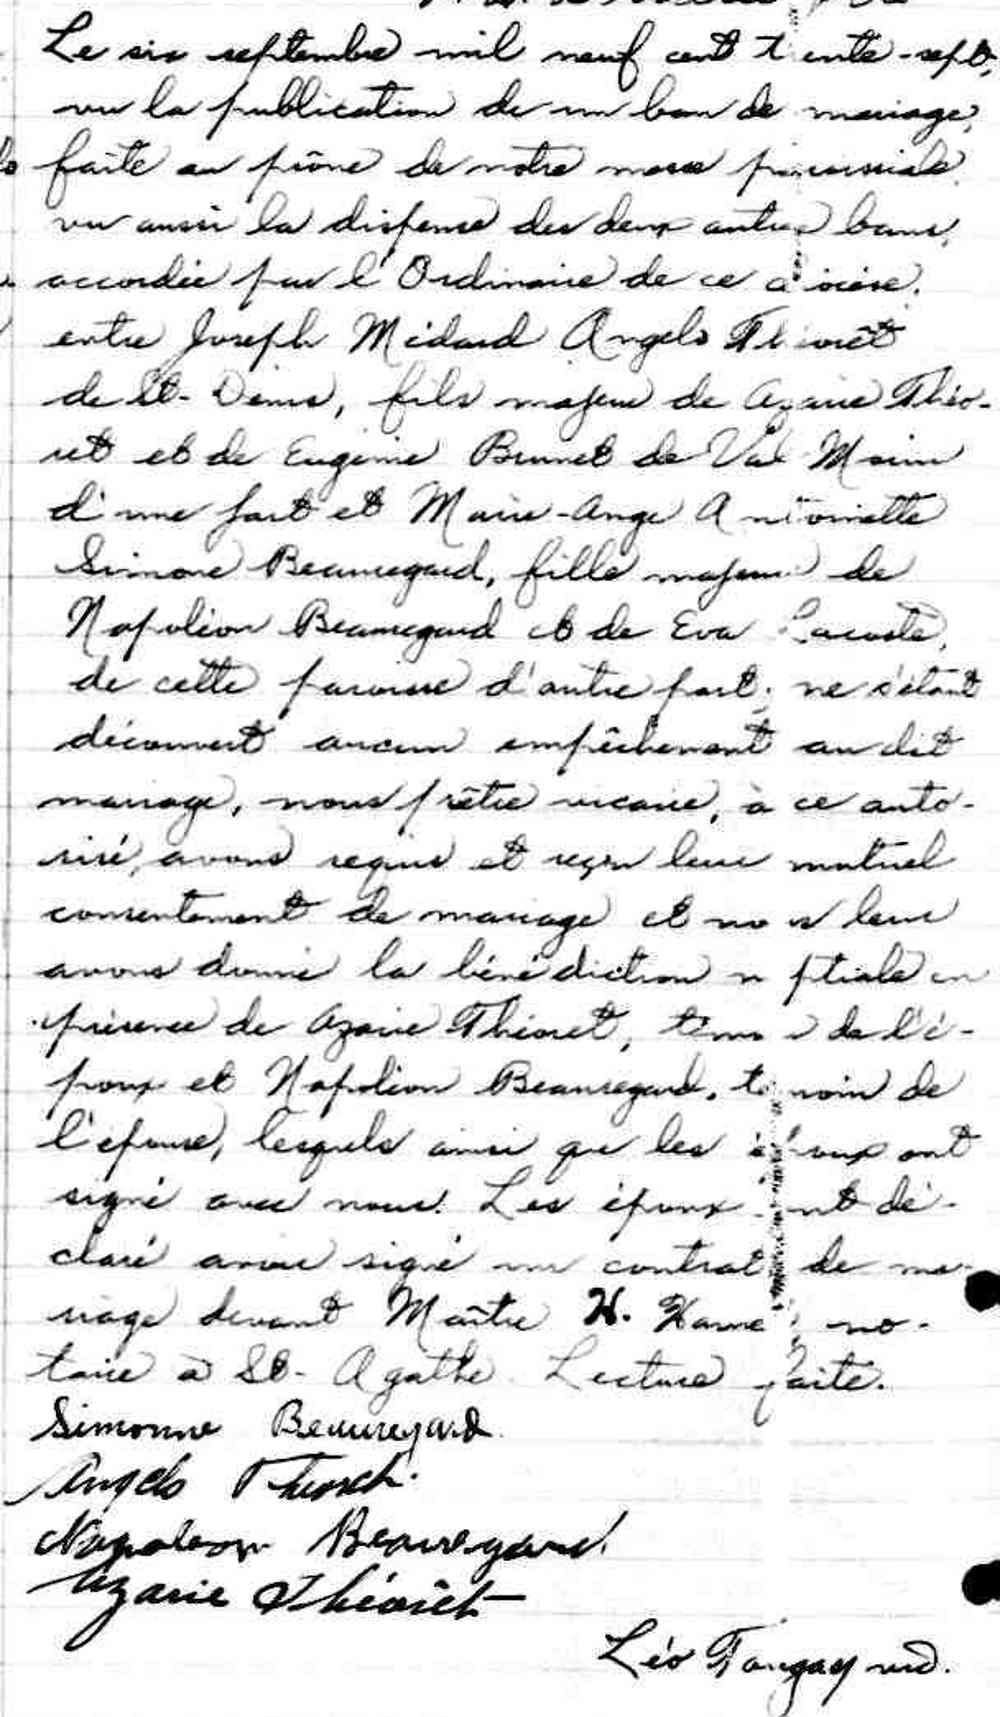 Le six septembre mil neuf cent trente-sept,
vu la publication de un ban de mariage,
faite au prône de notre messe paroissiale
vu aussi la dispense des deux autres bans,
accordée par l'Ordinaire de ce diocèse.
entre Joseph Médard Angelo Théorêt
de St-Denis, fils majeur de Azarie Théo-
ret et de Eugénie Brunet de Val Morin
d'une part et Marie-Ange Antoinette
Simone Beauregard, fille majeure de
Napoléon Beauregard et de Eva Lacoste,
de cette paroisse d'autre part; ne s'étant
découvert aucun empêchement au dit
mariage, nous prêtre vicaire, à ce auto-
risé, avons requis et reçu leur mutuel
consentement de mariage et nous leur
avons donné la bénédiction nuptiale en
présence de Azarie Théoret, témoin de l'é-
poux et Napoléon Beauregard, témoin de
l'épouse, lesquels ainsi que les époux ont
signé avec nous. Les époux ont dé-
claré avoir signé un contrat de ma-
riage devant Maître H. no-
taire à St-Agathe. Lecture faite.
Simonne Beauregard
Angelo Théoret
Napoleon Beauregard
Azarie Théorêt
Léo ptre